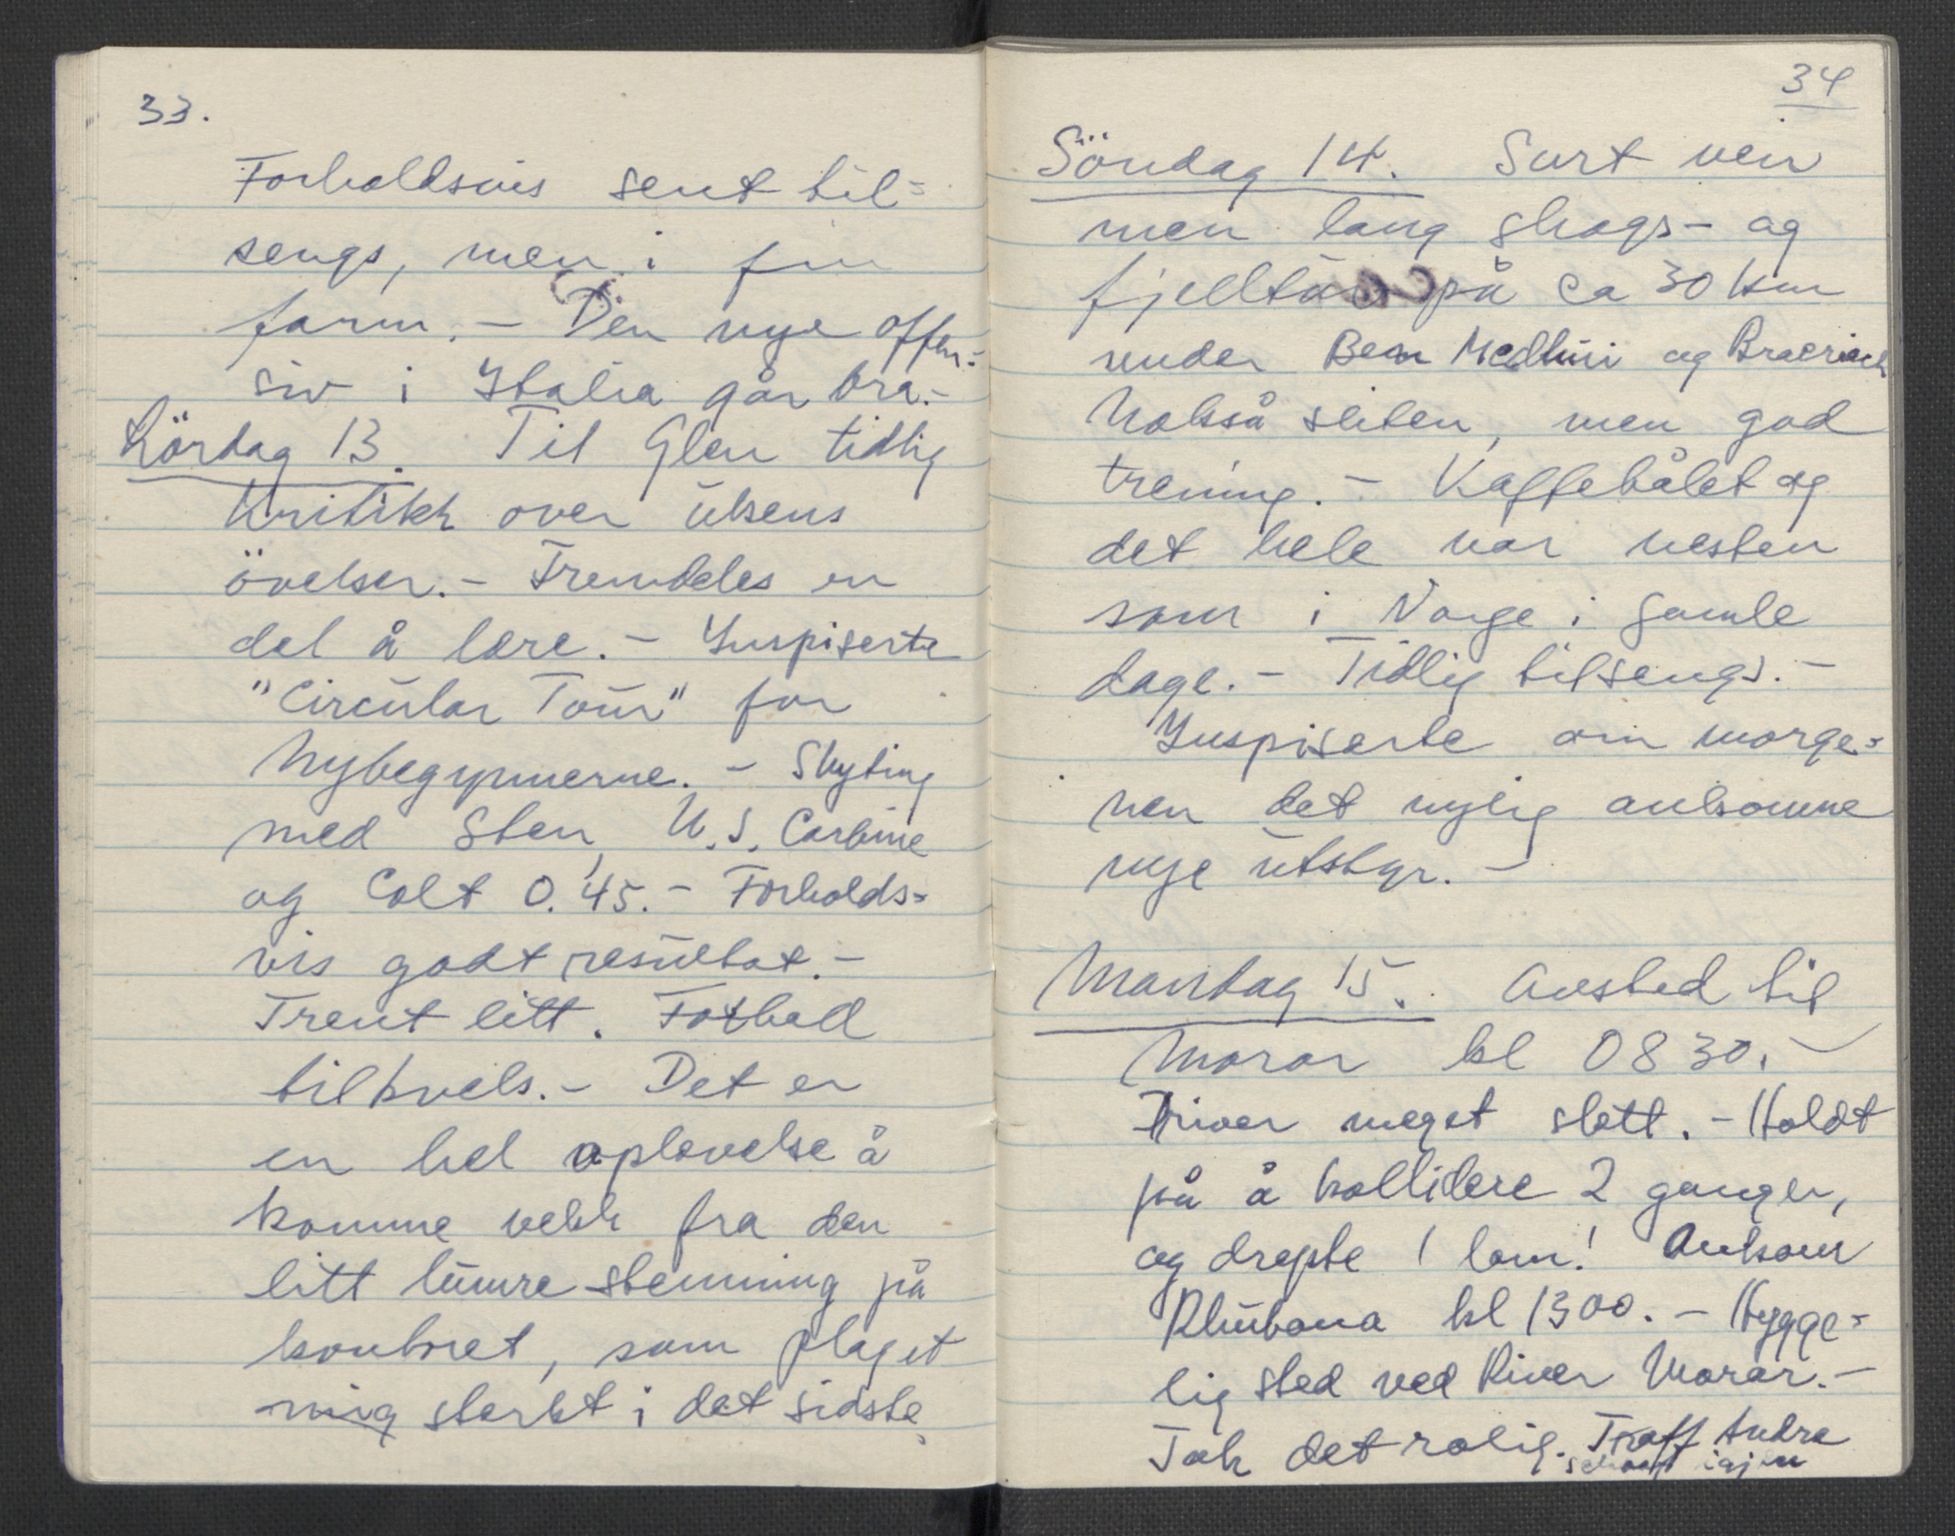 33.
Forholdsvis sent til=
sengs, men i fin
form. - Den nye offen-
siv i Italia går bra.-
Lördag 13. Til Glen tidlig
Kritikk over ukens
övelser. - Fremdeles en
del å lære. - Inspiserte
"Circular Tour" for
Nybegynnerne. - Skyting
med Sten, U.S. Carbine
og Colt 0.45. - Forholds=
vis godt resultat. -
Trent litt. Fotball
tilkvels. - Det er
en hel oplevelse å
komme vekk fra den
litt lumre stemning på
kontoret, som plaget
mig sterkt i det sidste
34
Söndag 14. Surt veir
men lang skogs- og
fjelltur på ca 30 km
under Ben Medhui og Braeriach
Nokså sliten, men god
trening. - Kaffebålet og
det hele var nesten
som i Norge i gamle
dage. - Tidlig tilsengs. -
Inspiserte om morge=
nen det nylig ankomne
nye utstyr. -
Mandag 15. Avsted til
Morar kl 0830. -
Driver meget slett. - Holdt
på å kollidere 2 ganger,
og drepte 1 lam! Ankom
Rhubana kl 1300. - Hygge=
lig sted ved River Morar. -
Tok det rolig. Traff Andre
igjen